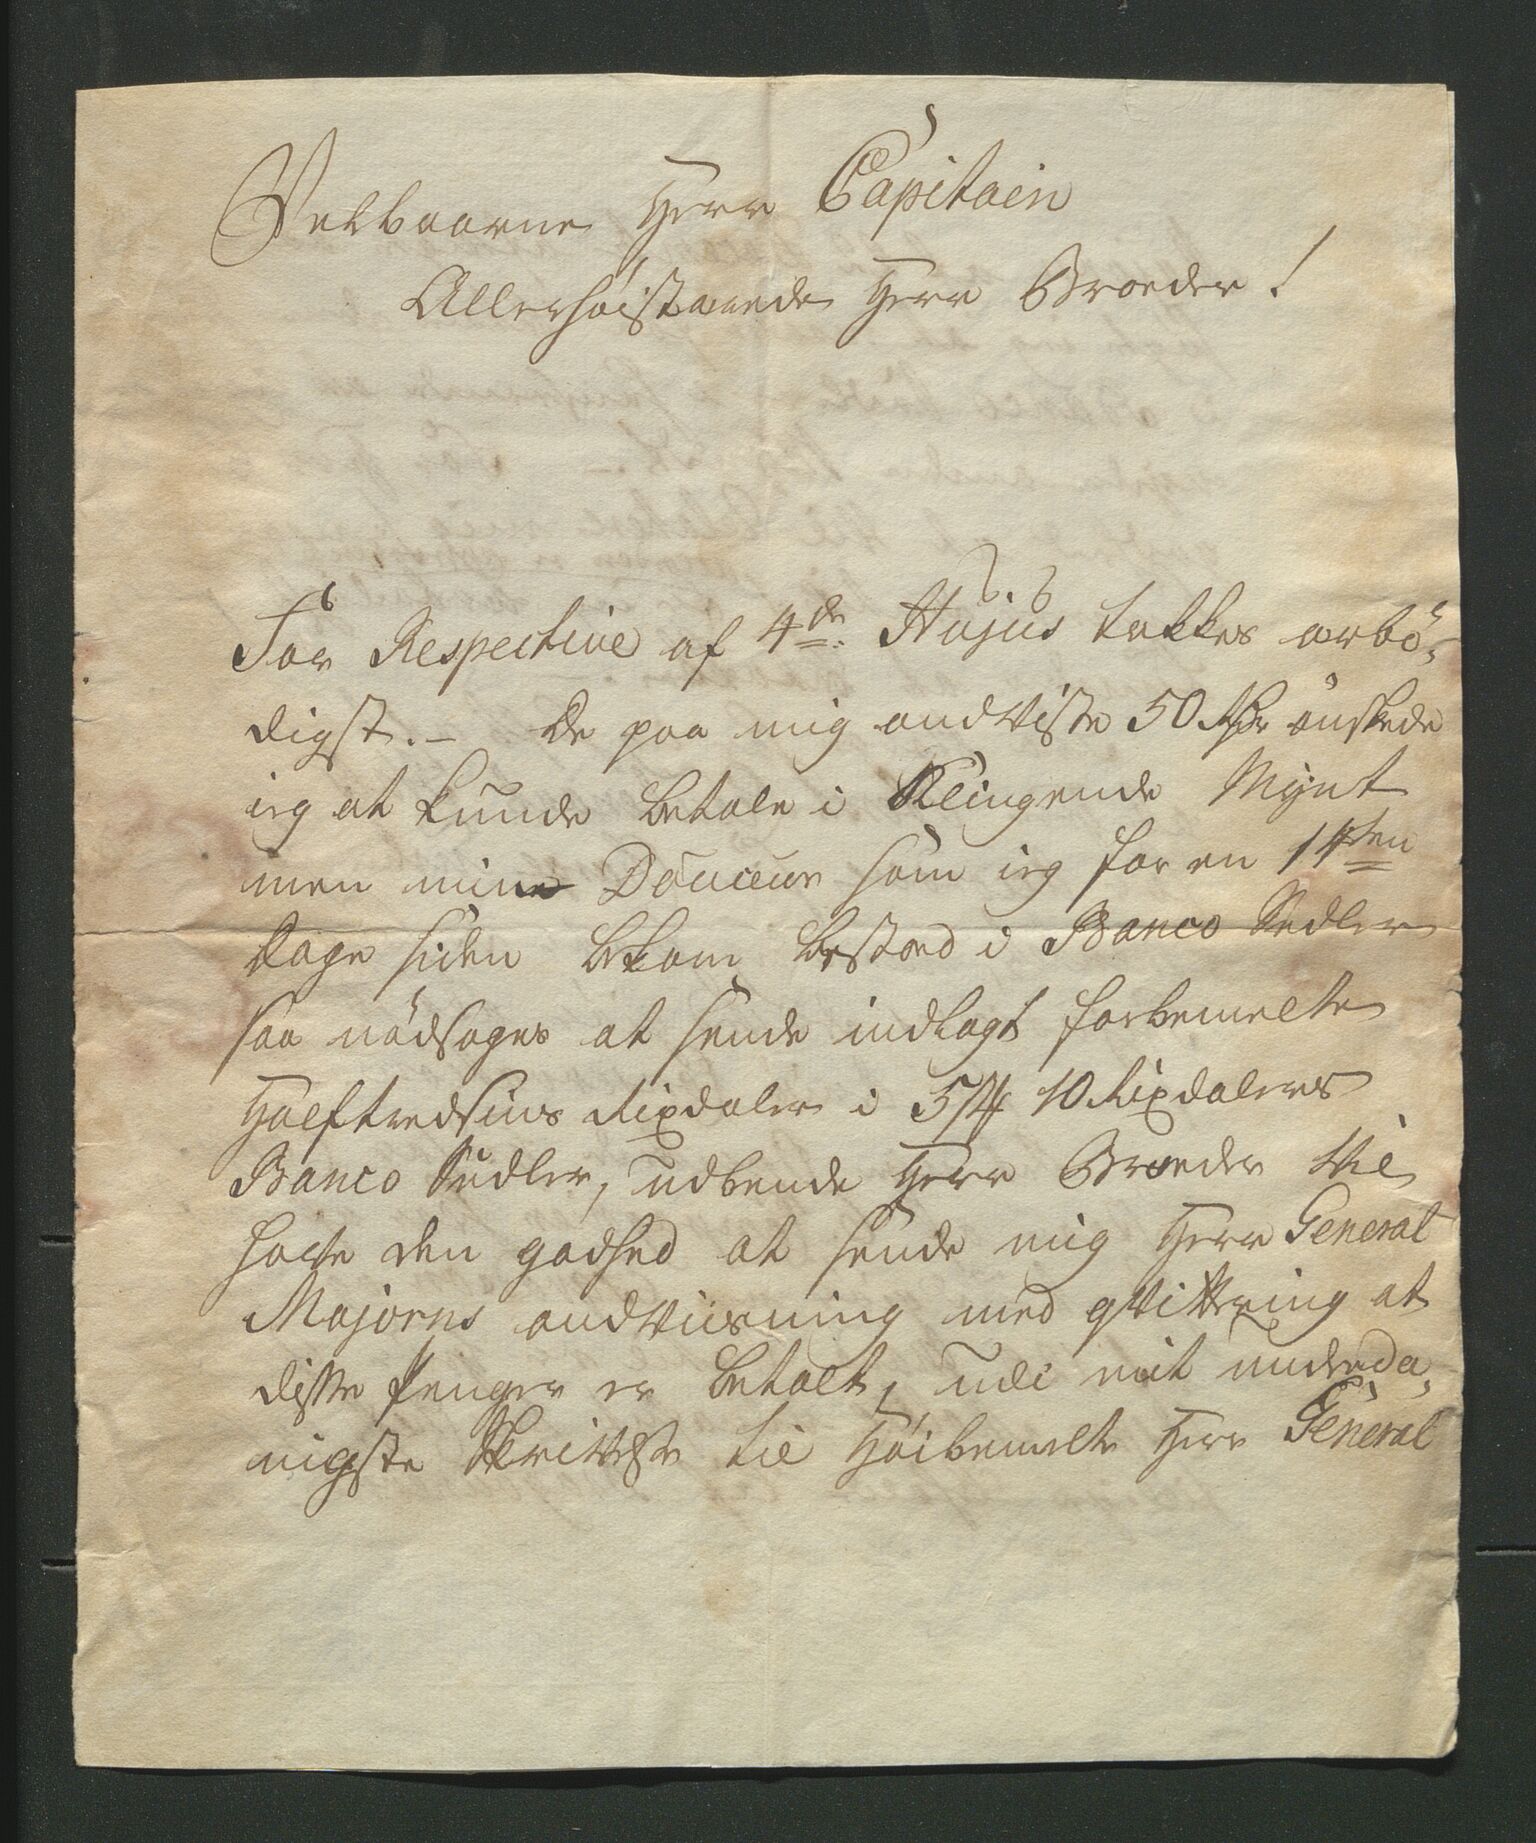 Velbaarne Herr Capitain
Allerhöistærede Herr Broeder!
For Respective af 4de Hujus takkes ærbö-
digst. — De paa mig andviste 50 Rdr önskede
ieg at kunde betale i Klingende Mÿnt
men mine Douceur som ieg for en 14ten
dage siden bekom bestoed i Banco Sedler
saa nödsages at sende indlagt forbemelte
Halftredsins Rixdaler i 5 10 Rixdalers
Banco Sedler, udbeende Herr Broeder vil
have den godhed at sende mig Herr General
Majorns andviisning med qvittering at
disse Penger er betalt, udi mit underda-
nigste til Höibemelte Herr General